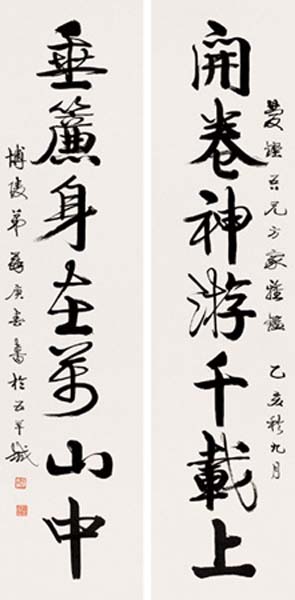 開卷神游千載上
吾兄方家 乙亥秋九月
垂簾身在萬山中
博陵弟 庚春書於 城